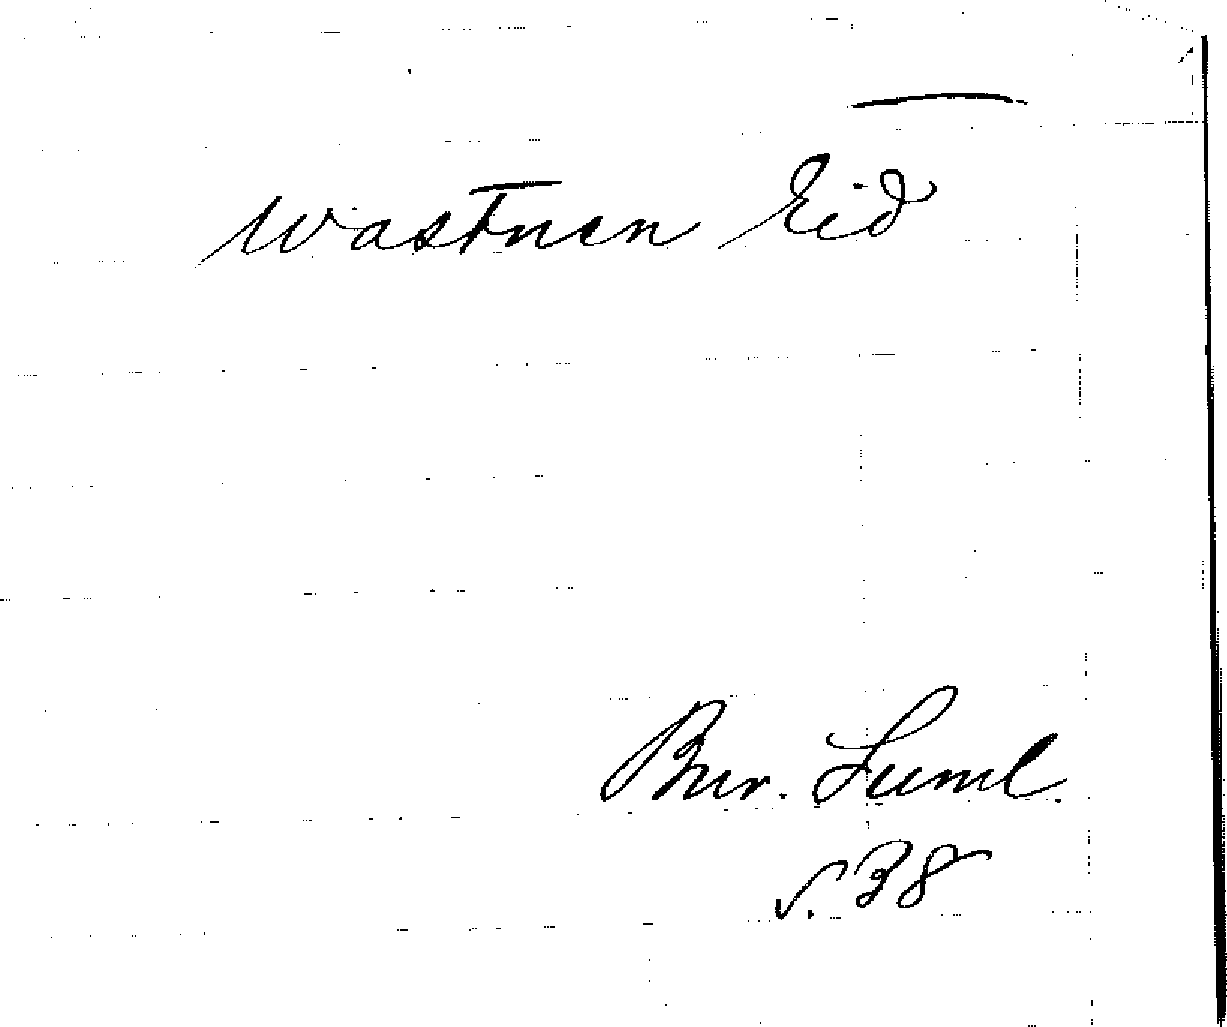 Wastnen Eid
Bur. Luml.
s. 38